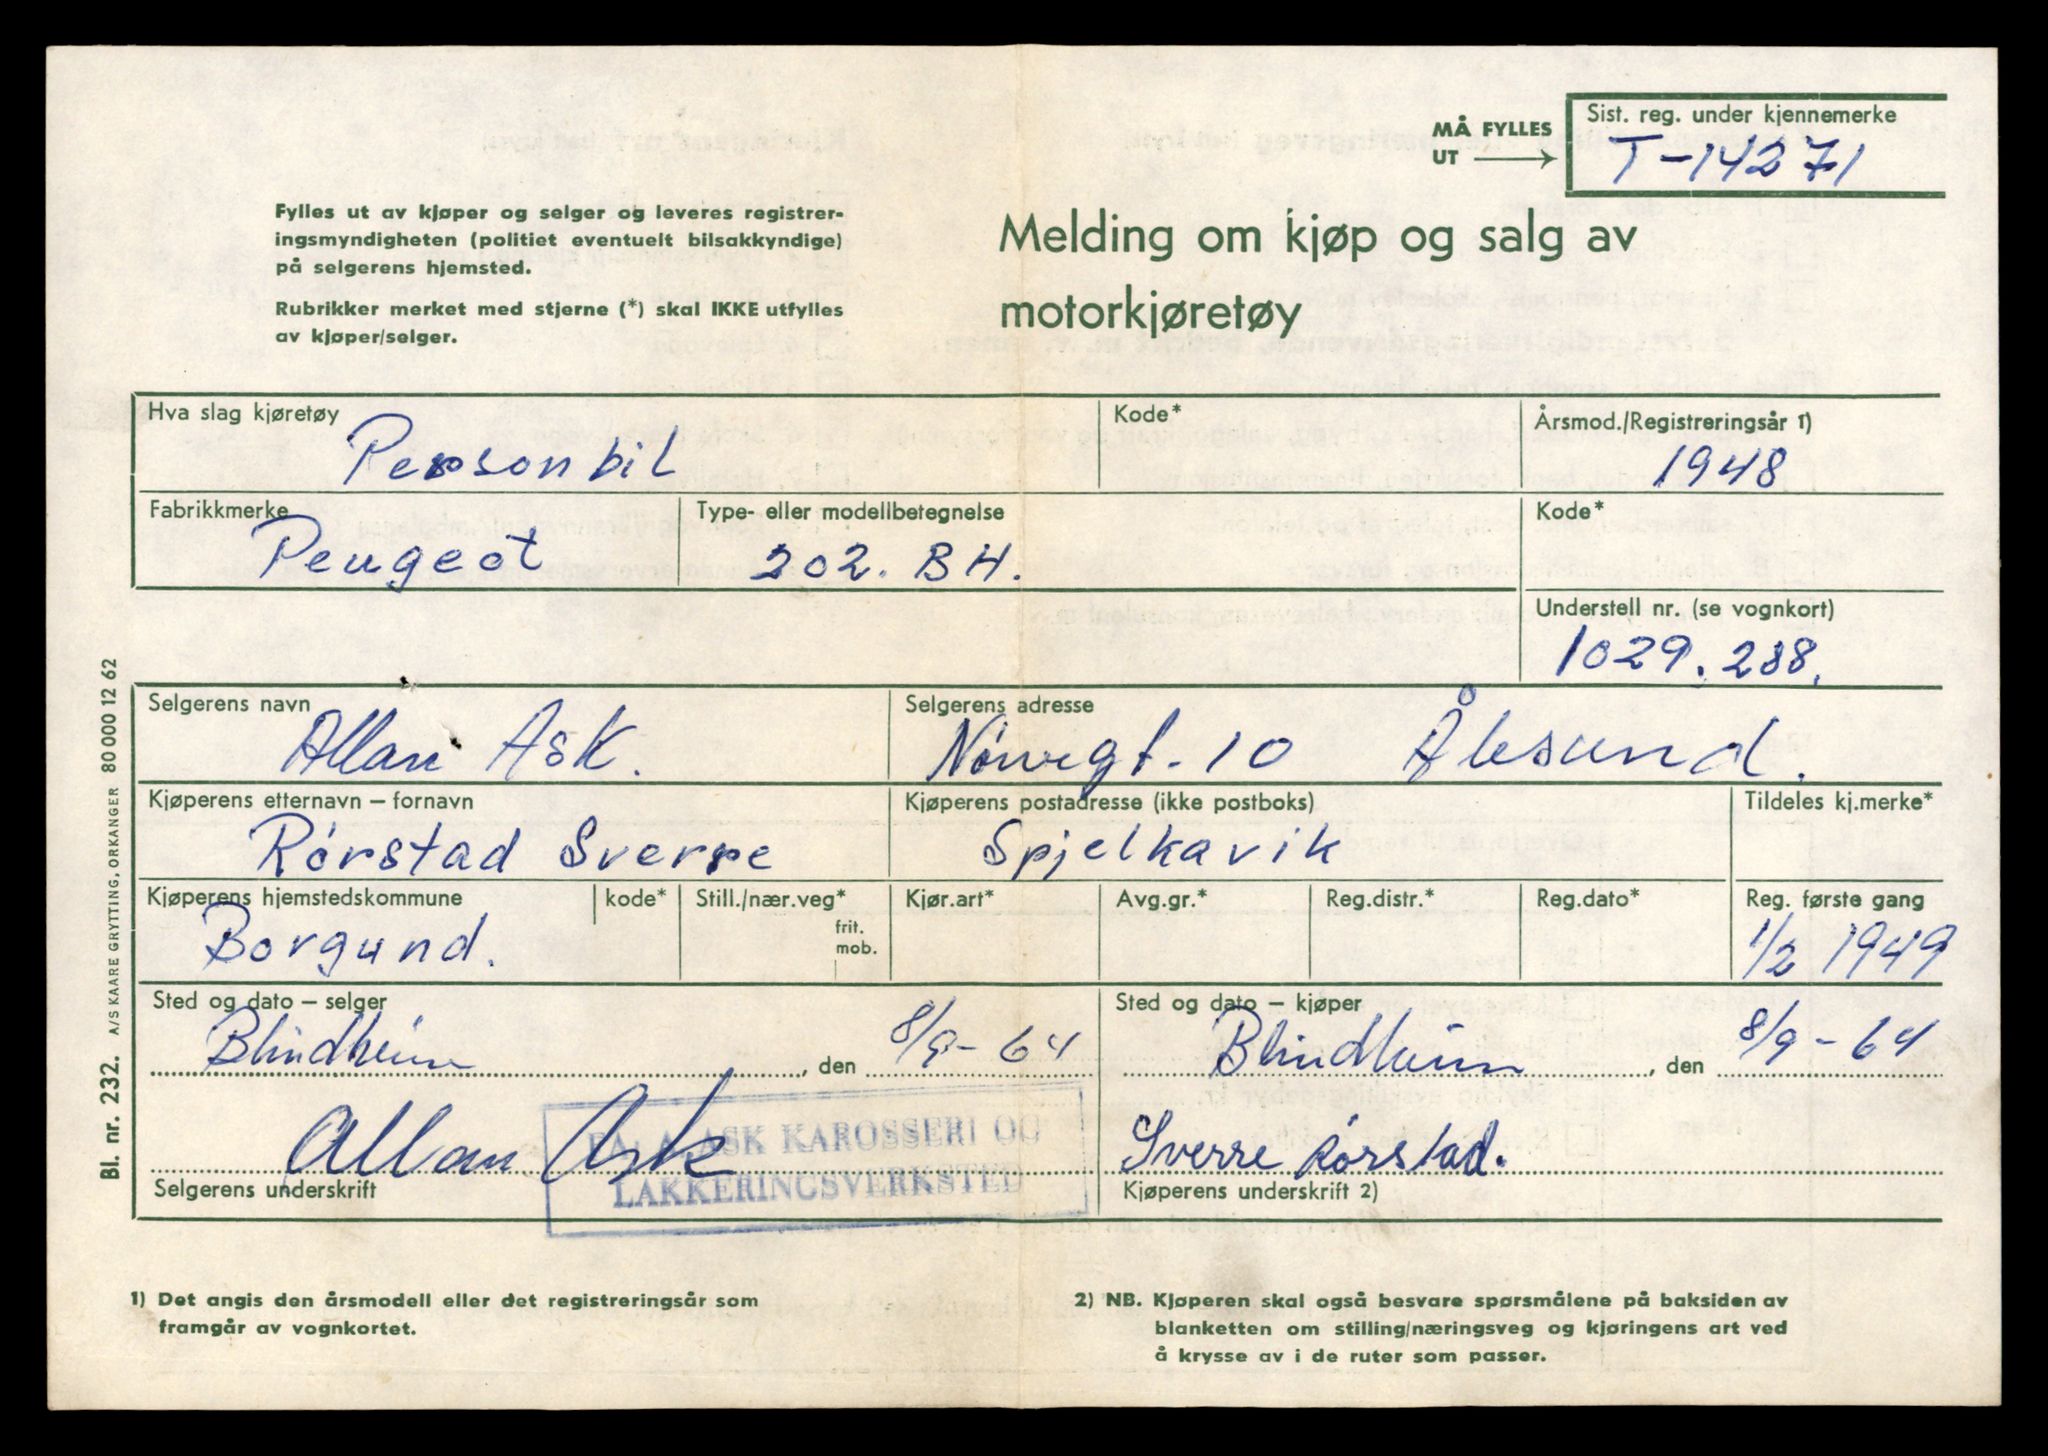 MÅ FYLLES UT →
Sist. reg. under kjennemerke
T-14271
Fylles ut av kjøper og selger og leveres registrer-
ingsmyndigheten (politiet eventuelt bilsakkyndige)
på selgerens hjemsted.
Rubrikker merket med stjerne (*) skal IKKE utfylles
av kjøper/selger.
Melding om kjøp og salg av
motorkjøretøy
Hva slag kjøretøy
Personbil
Kode*
Årsmod./Registreringsår 1)
1948
Fabrikkmerke
Peugeot
Type- eller modellbetegnelse
202. BH.
Kode*
Understell nr. (se vognkort)
1029.288.
Selgerens navn
Allan Ask.
Selgerens adresse
10 Ålesund.
Kjøperens etternavn – fornavn
Rørstad Sverre
Kjøperens postadresse (ikke postboks)
Spjelkavik
Tildeles kj.merke*
Kjøperens hjemstedskommune
Borgund.
kode*
Still./nær.veg*
frit.
mob.
Kjør.art*
Avg.gr.*
Reg.distr.*
Reg.dato*
Reg. første gang
1/2 1949
Sted og dato – selger
Blindheim, den 8/9-64
Sted og dato – kjøper
Blindheim, den 8/9-64
Allan Ask
A. ASK KAROSSERI OG
LAKKERINGSVERKSTED
Selgerens underskrift
Sverre Rørstad.
Kjøperens underskrift 2)
Bl. nr. 232. A/S KAARE GRYTTING, ORKANGER 80 000 12 62
1) Det angis den årsmodell eller det registreringsår som
framgår av vognkortet.
2) NB. Kjøperen skal også besvare spørsmålene på baksiden av
blanketten om stilling/næringsveg og kjøringens art ved
å krysse av i de ruter som passer.